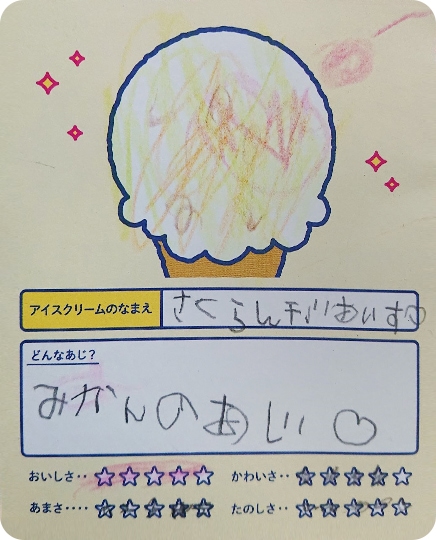 アイスクリームのなまえ
さくらんボリあいす♡
どんなあじ？
みかんのあじ ♡
おいしさ‥ ☆☆☆☆☆ かわいさ‥ ☆☆☆☆☆
あまさ‥‥ ☆☆☆☆☆ たのしさ‥ ☆☆☆☆☆